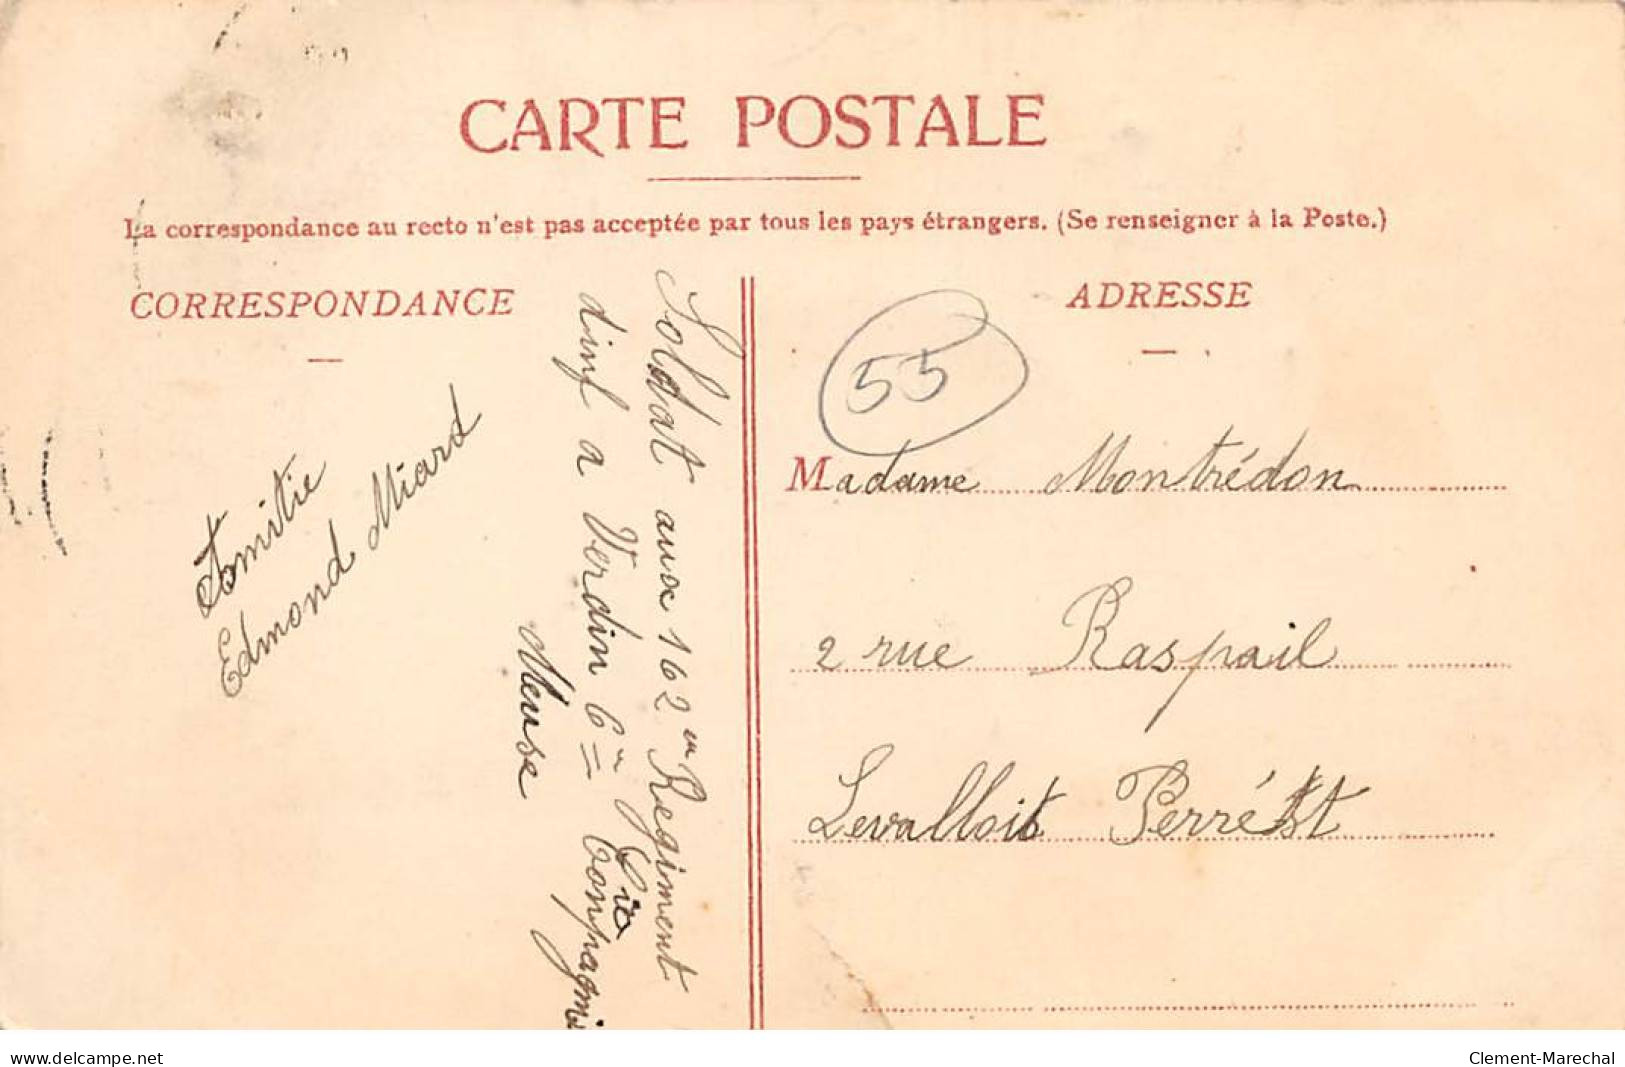 CARTE POSTALE
La correspondance au recto n'est pas acceptée par tous les pays étrangers. (Se renseigner à la Poste.)
CORRESPONDANCE
Amitie
Edmond Miard
Soldat aux 162 em Regiment
dinf a Verdin 6 em Compagnie
Cie
Meuse
ADRESSE
55
Madame Montrédon
2 rue Raspail
Levallois Perrést
www.delcampe.net
Clement-Marechal